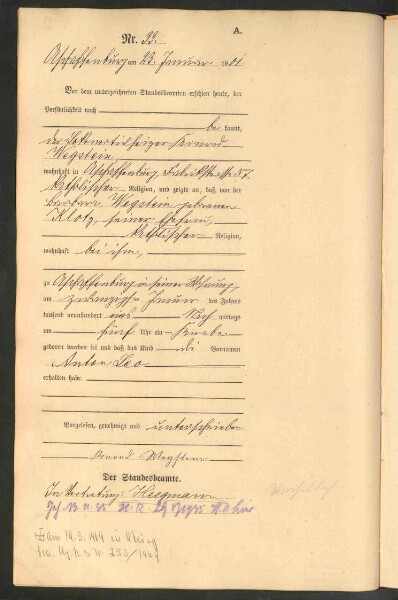 A.
Nr. 33.
Aschaffenburg am 23. Januar 1901
Vor dem unterzeichneten Standesbeamten erschien heute, der
Persönlichkeit nach
be kannt,
der Lokomotivheizer Konrad
Wegstein
wohnhaft in Aschaffenburg, Fabrikstraße N. 7.
katholischer Religion, und zeigte an, daß von der
Barbara Wegstein geborenen
Klotz, seiner Ehefrau,
katholischer Religion,
wohnhaft bei ihm,
zu Aschaffenburg in seiner Wohnung,
am des Januar des Jahres
tausend neunhundert eins Nach mittags
um fünf Uhr ein Knabe
geboren worden sei und daß das Kind die Vornamen
Anton Leo
erhalten habe.
Vorgelesen, genehmigt und unterschrieben
Konrad Wegstein
Der Standesbeamte.
In Vertretung: Heegmann